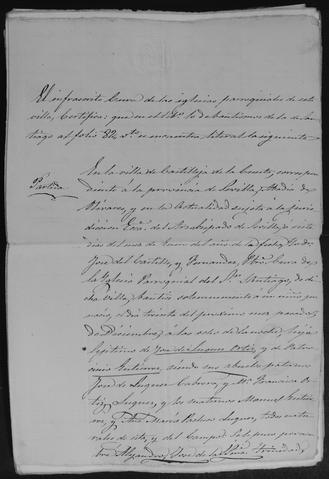 El infrascrito Cura de las iglesias parroquiales de esta
villa, Certifico: que en el libro de bautismos de la de San-
tiago al folio 82 se encuentra literal la siguiente
Partida
En la villa de Castilleja de la Cuesta, corres-
pondiente á la provincia de Sevilla, Abadia de
Olivares, y en la Actualidad sujeta á la juris-
diccion del Arzobispado de Sevilla, en
dias del mes de Enero del año de la fecha, Yo Dn
José del Castillo, y Fernandez, Cura de
la Yglesia Parroquial del Sr. Santiago, de di-
cha villa, bautisé solemnemente a un niño que
nació, el dia treinta del proximo mes pasado
de Diciembre, á las ocho de la noche, hijo
legitimo de José de Ortiz, y de
siendo sus abuelos paternos
José de Cabrera, y Da. Francisca Or-
tiz y los maternos Manuel
y Da. Maria todos natu-
rales de esta, y del
Alejandro, José de la Trinidad,